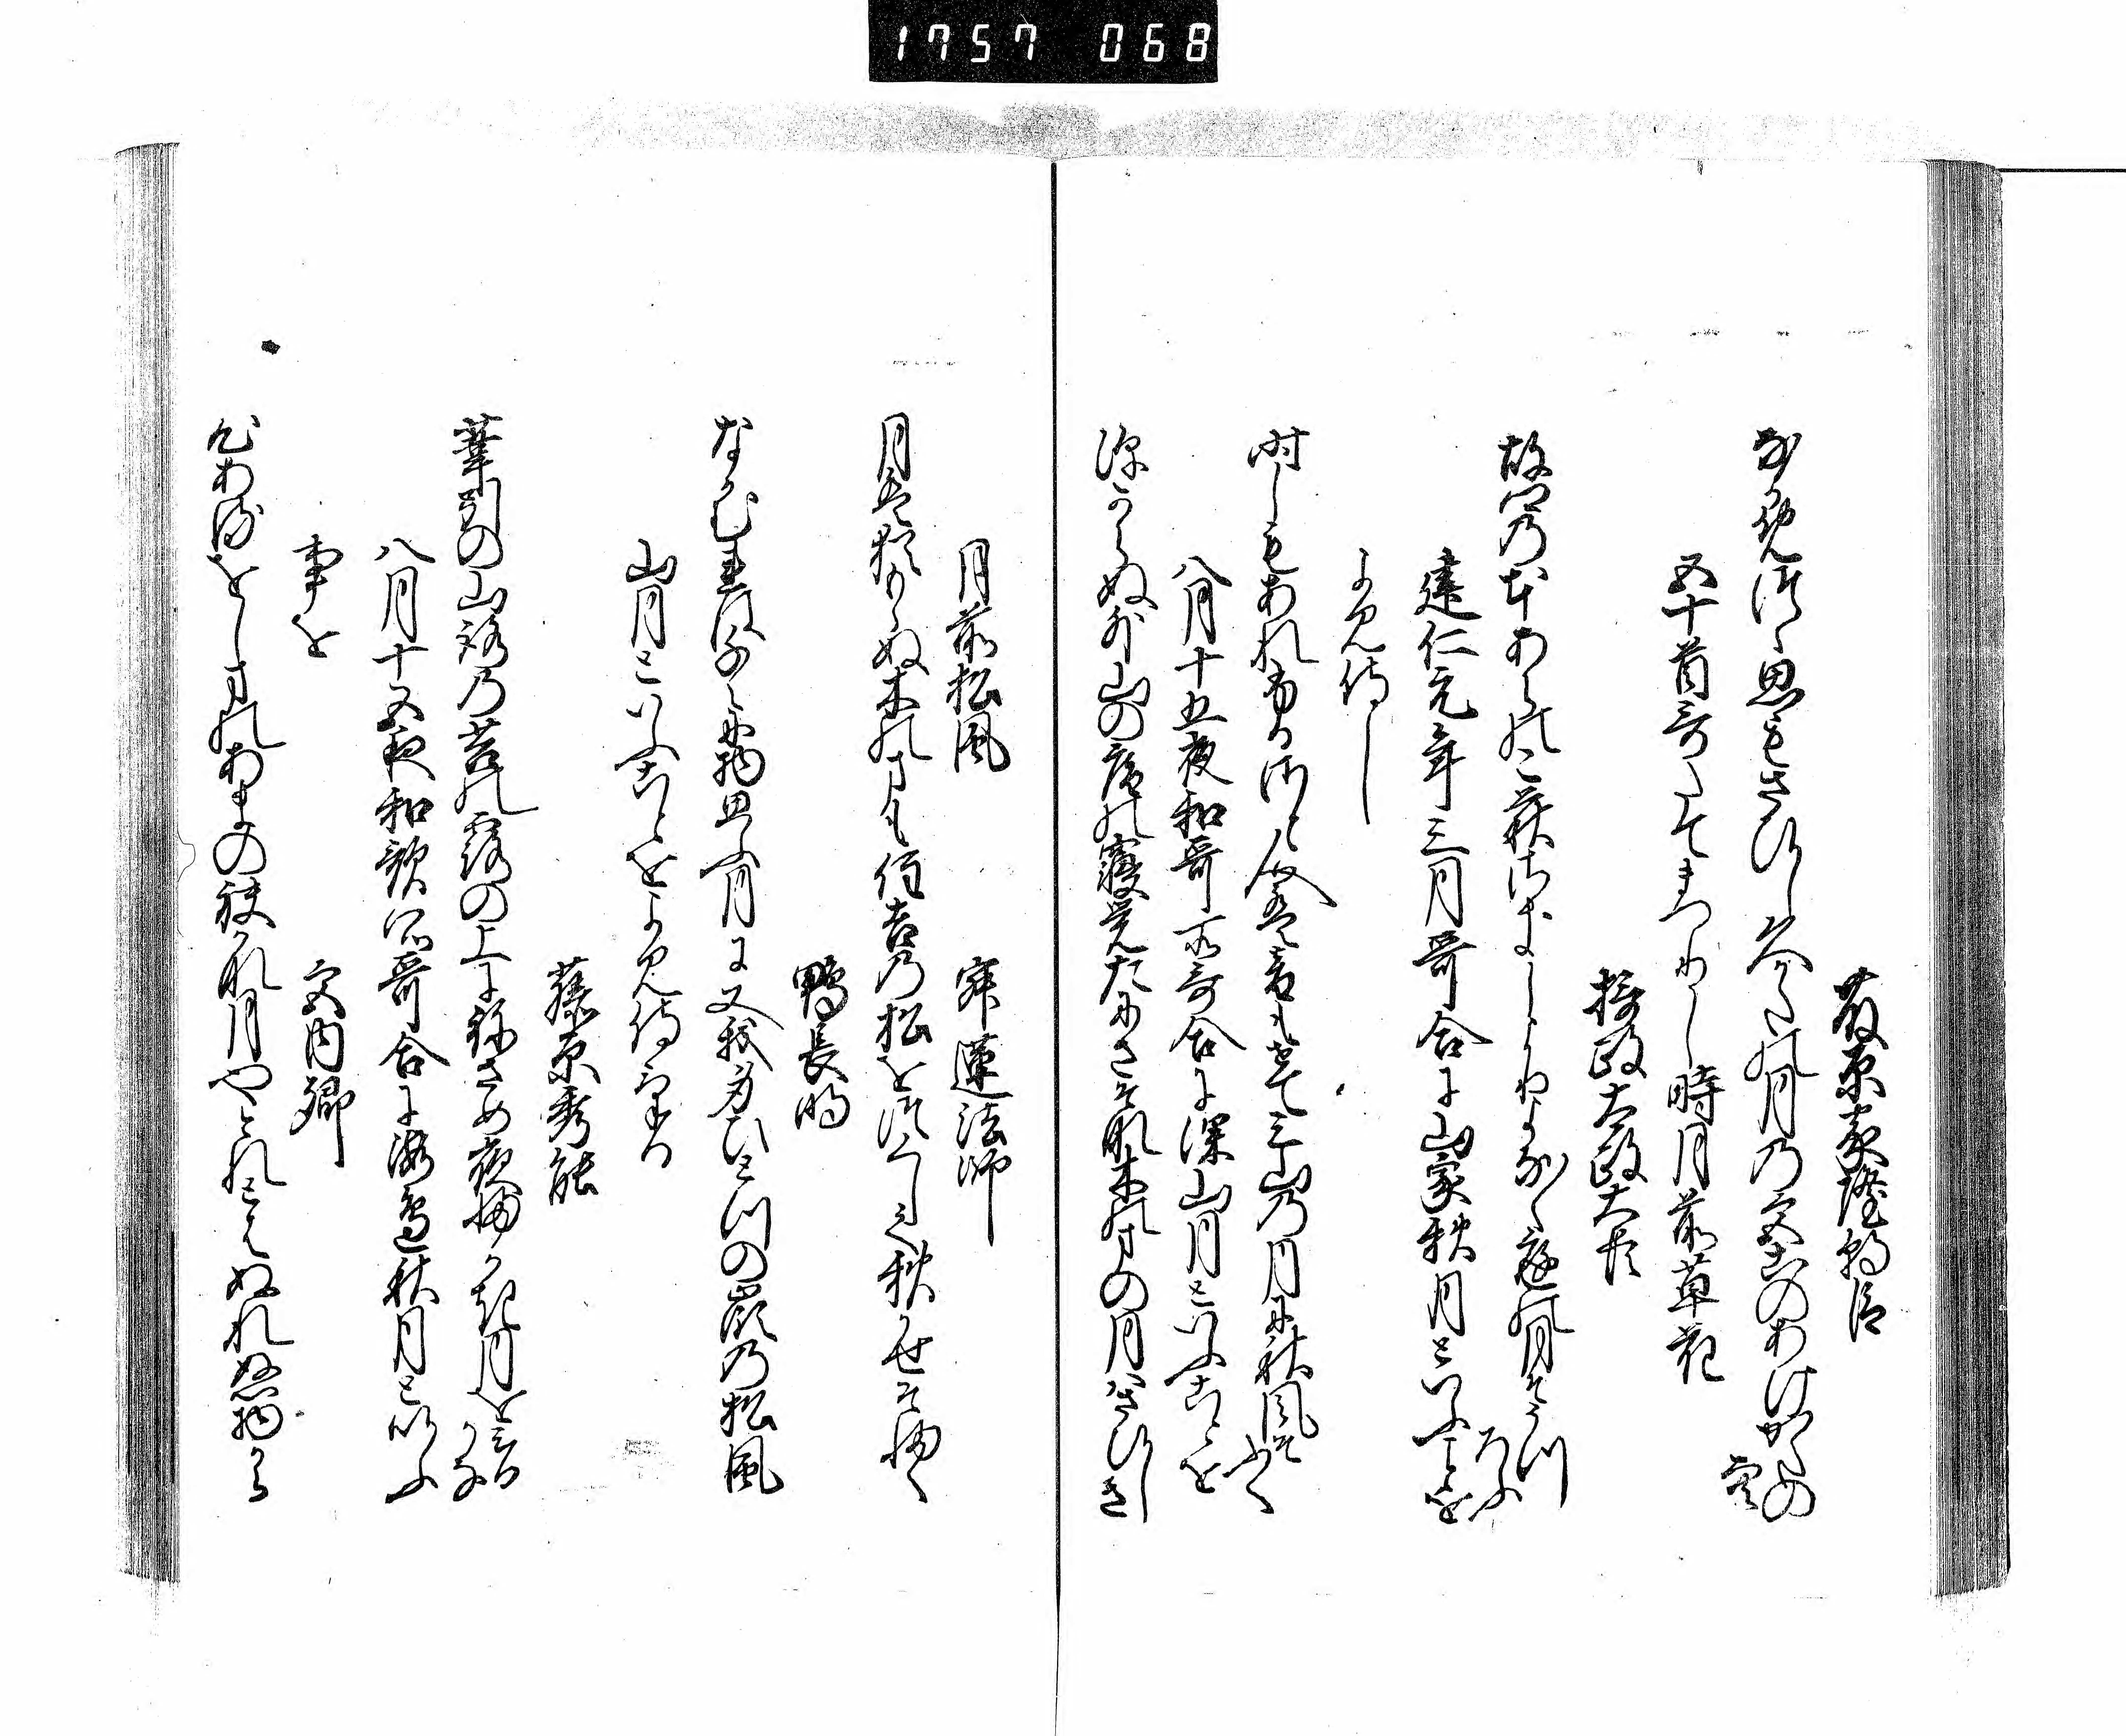 1757 068
藤原家隆朝臣
なかめつゝ思もさひし久かたの月の宮このあけかたの
空
五十首哥たてまつりし時月前草花
摂政太政大臣
故郷の本あらの小萩さきしより夜な〱庭の月そうつ
ろふ
建仁元年三月哥合に山家秋月といふことを
よみ侍し
時しもあれふる郷人は音もせてみ山の月に秋風そ
ふく
八月十五夜和哥所哥合に深山月といふことを
深からぬ外山の庵の寝覚たにさそな木のまの月はさひし
き
月前松風
寂蓮法師
月は猶もらぬ木のまも住吉の松をつくして秋かせそ吹
鴨長明
なかむれはちゝに物思ふ月に又我身ひとつの嶺の松風
山月といふことをよみ侍ける
藤原秀能
葦引の山路の苔の露の上にねさめ夜ふかき月をみる
かな
八月十五夜和歌所哥合に海邊秋月といふ
事を
宮内卿
心あるをしまのあまの袂かな月やとれとはぬれぬ物から